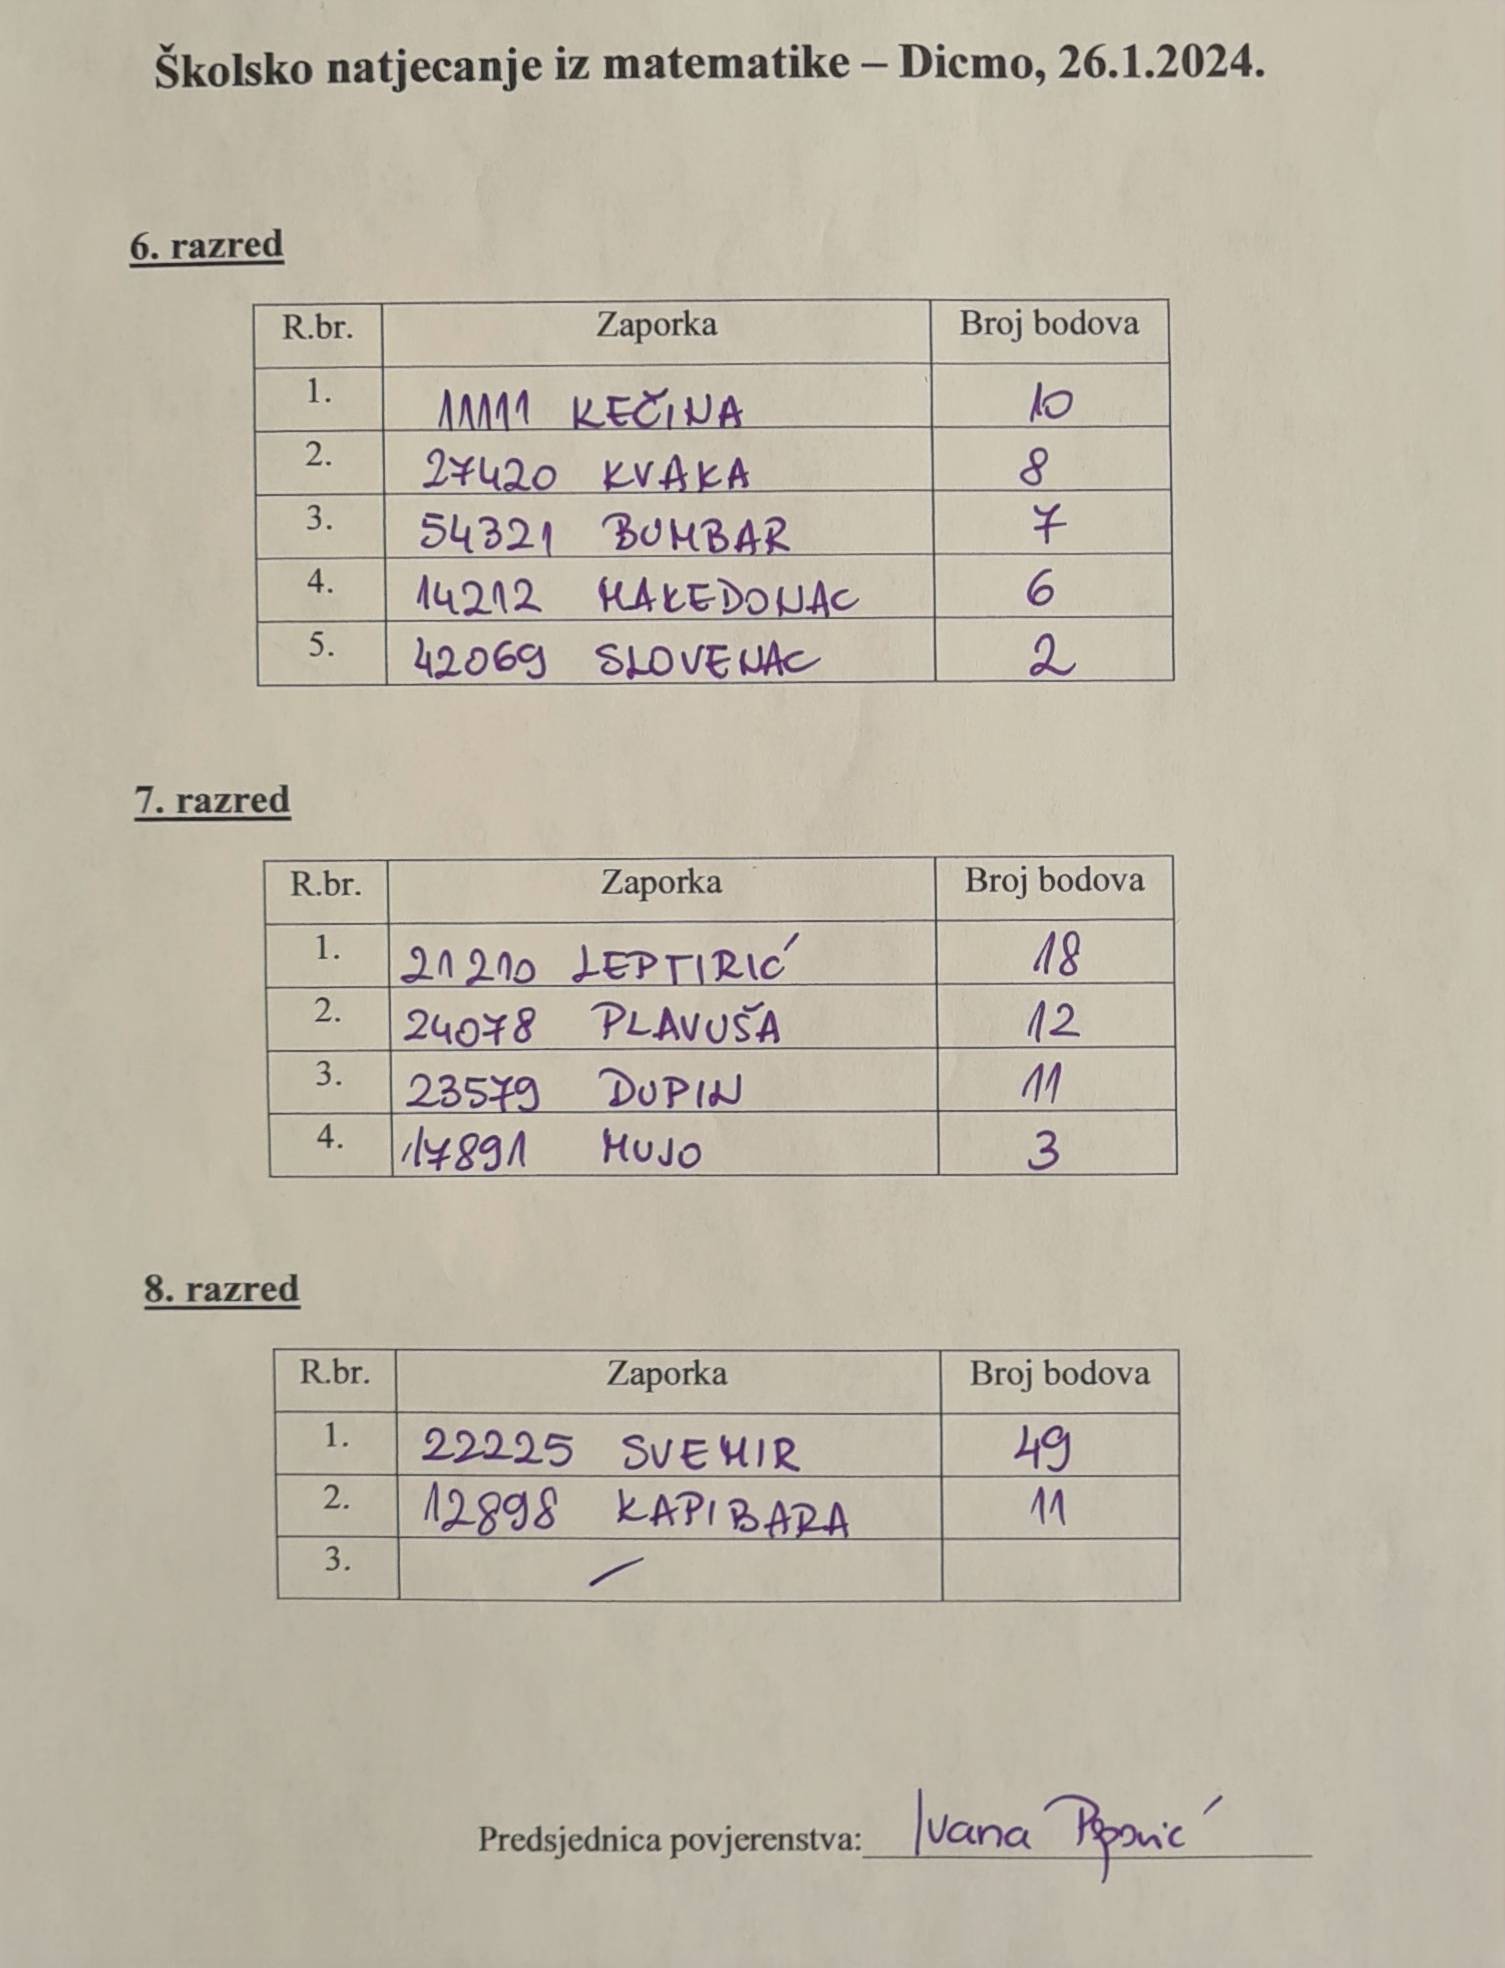 Školsko natjecanje iz matematike – Dicmo, 26.1.2024.
6. razred
R.br. Zaporka Broj bodova
1. 11111 KEČINA 10
2. 27420 KVAKA 8
3. 54321 BUMBAR 7
4. 14212 MAKEDONAC 6
5. 42069 SLOVENAC 2
7. razred
R.br. Zaporka Broj bodova
1. 21210 LEPTIRIĆ 18
2. 24078 PLAVUŠA 12
3. 23579 DUPIN 11
4. 17891 MUJO 3
8. razred
R.br. Zaporka Broj bodova
1. 22225 SVEMIR 49
2. 12898 KAPIBARA 11
3. /
Predsjednica povjerenstva: Ivana Popović